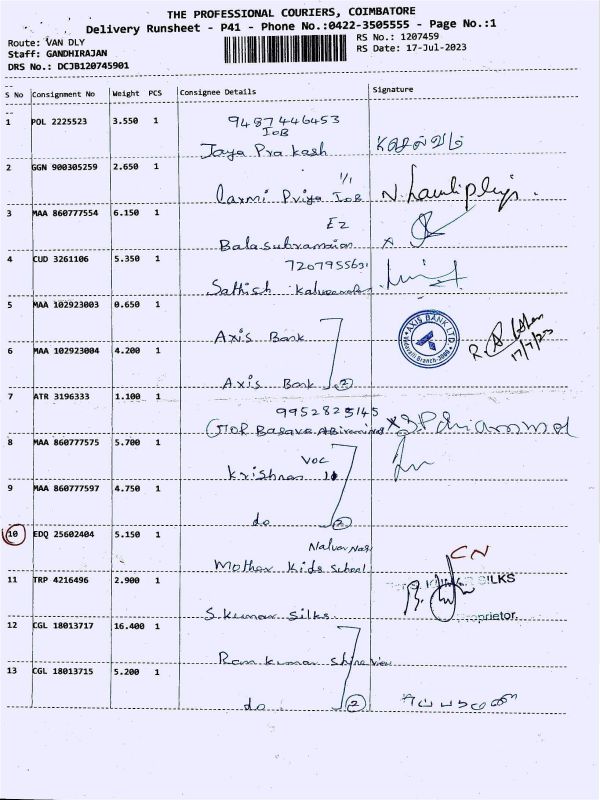 THE PROFESSIONAL COURIERS, COIMBATORE
Delivery Runsheet - P41 - Phone No.:0422-3505555 - Page No.:1
Route: VAN DLY
Staff: GANDHIRAJAN
DRS No.: DCJB120745901
RS No.: 1207459
RS Date: 17-Jul-2023
S No Consignment No Weight PCS Consignee Details Signature
1 POL 2225523 3.550 1 9487446453
IOB
Jaya Prakash
2 GGN 900305259 2.650 1 1/1
Laxmi Priya IOB
3 MAA 860777554 6.150 1 E2
Balasubramaian
4 CUD 3261106 5.350 1 7207955631
Sathish
5 MAA 102923003 0.650 1
Axis Bank
AXIS BANK LTD
17/7/23
6 MAA 102923004 4.200 1
Axis Bank 2
7 ATR 3196333 1.100 1 9952825145
8 MAA 860777575 5.700 1 VOC
Krishnan
9 MAA 860777597 4.750 1
do 2
10 EDQ 25602404 5.150 1
Mother Kids School
CN
11 TRP 4216496 2.900 1
SILKS
S.Kumar Silks
Proprietor.
12 CGL 18013717 16.400 1
Ram kumar
13 CGL 18013715 5.200 1
do 2